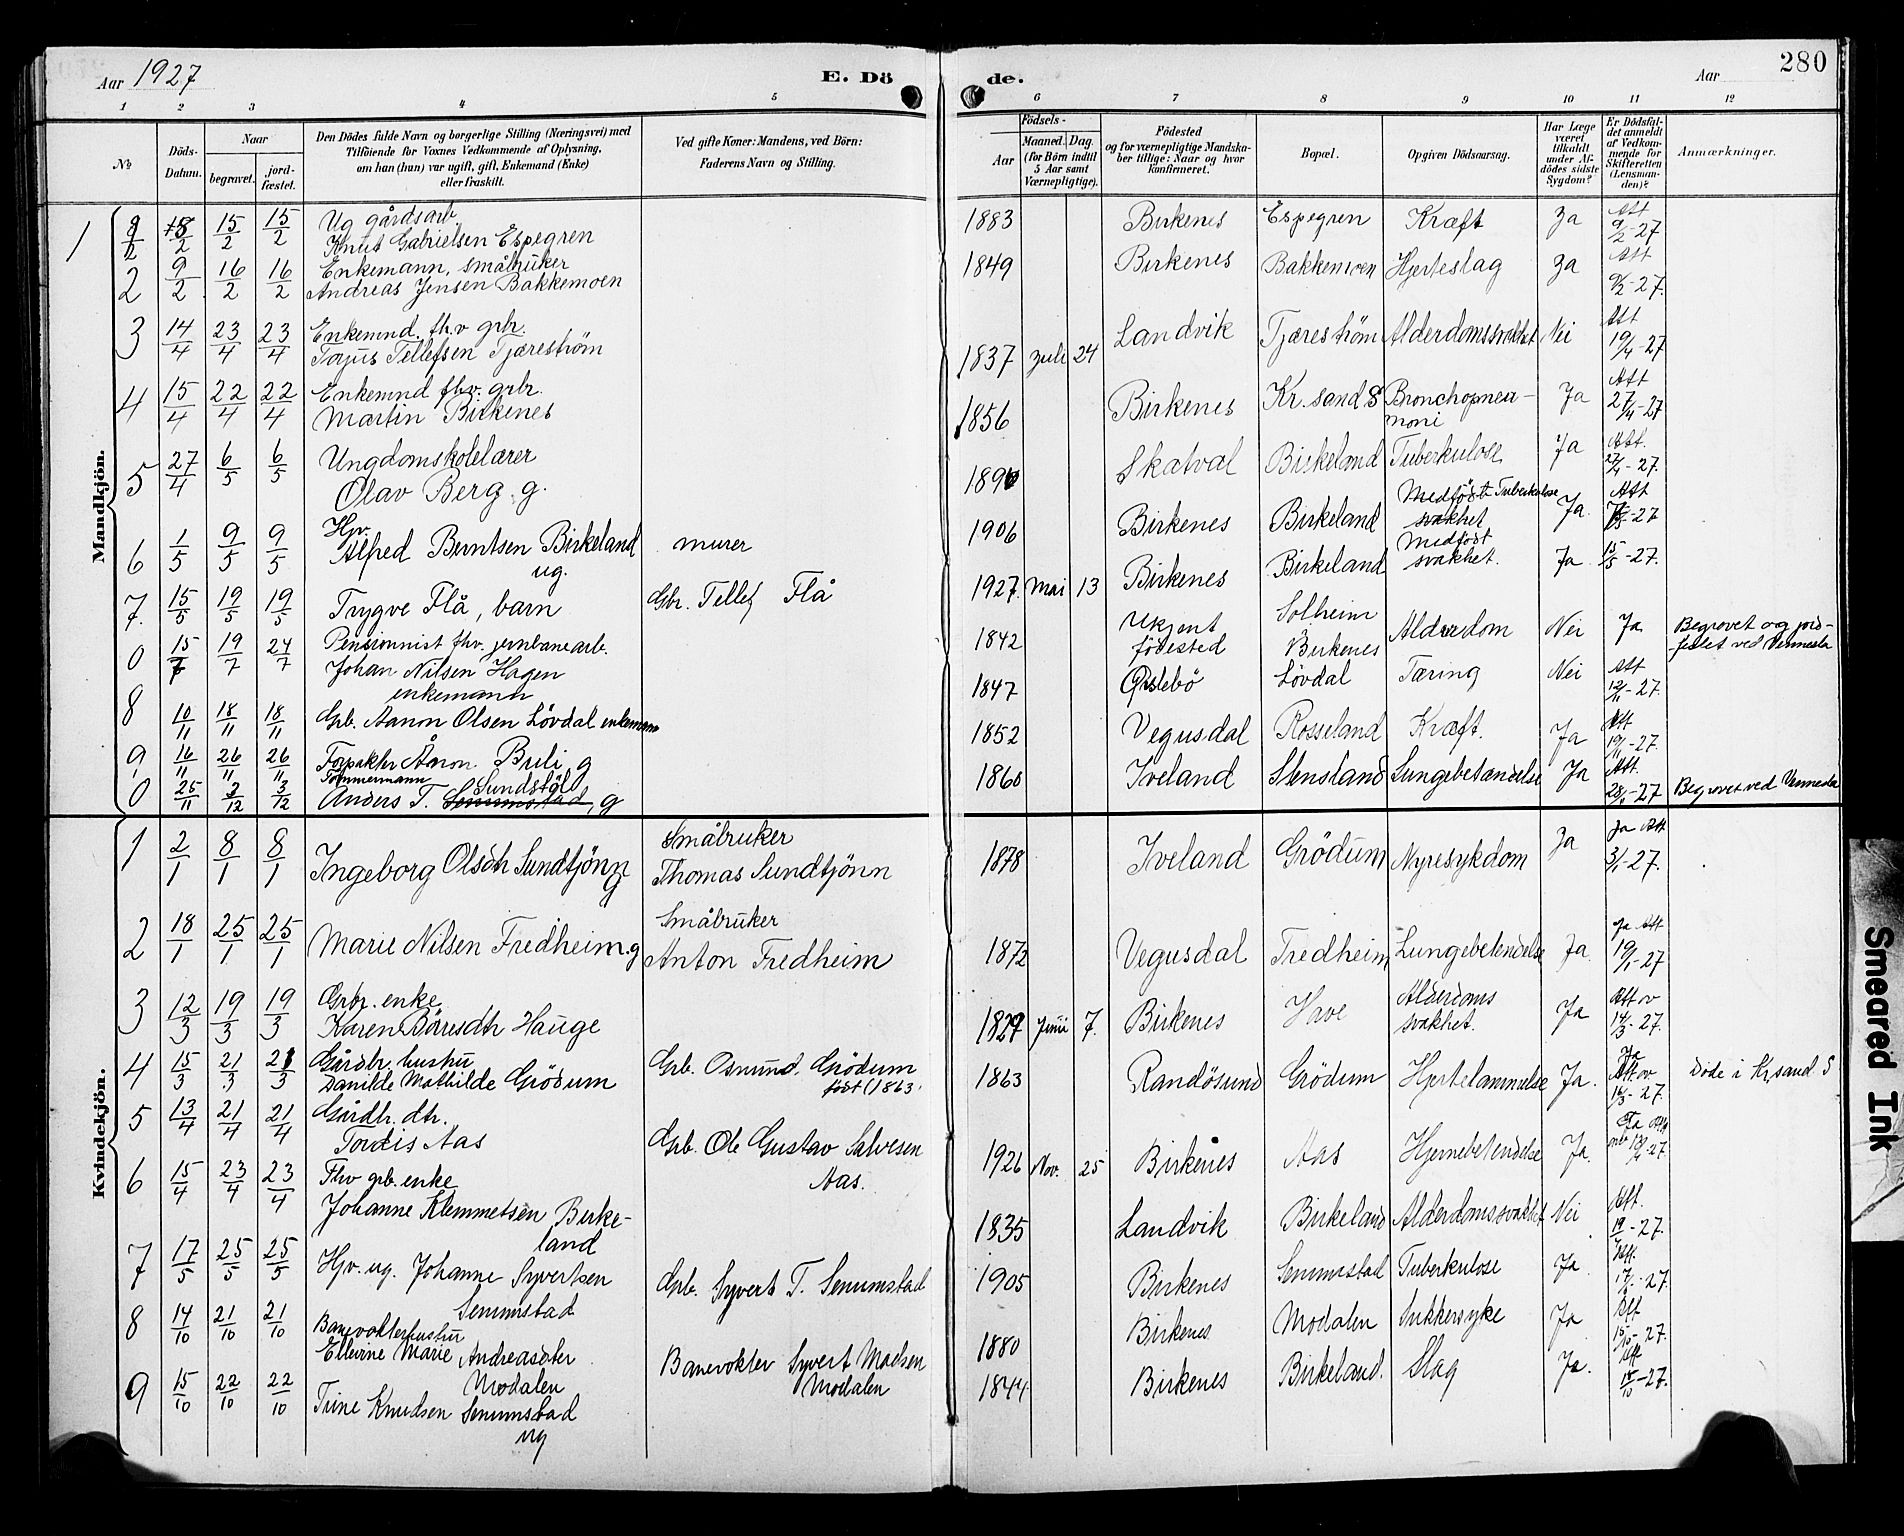 Aar 1927
E. Döde.
Aar
280
1 2 3 4 5 6 7 8 9 10 11 12
No
Döds-Datum.
Naar
begravet.
jord-fæstet.
Den Dödes fulde Navn og borgerlige Stilling (Næringsvei) med
Tilföiende for Voxnes Vedkommende af Oplysning,
om han (hun) var ugift, gift, Enkemand (Enke)
eller fraskilt.
Ved gifte Koner: Mandens, ved Börn:
Faderens Navn og Stilling.
Födsels-
Aar
Maaned. Dag.
(for Börn indtil
5 Aar samt
Værnepligtige).
Födested
og for værnepligtige Mandska-
ber tillige: Naar og hvor
konfirmeret.
Bopæl.
Opgiven Dödsaarsag.
Har Læge
været
tilkaldt
under Af-
dödes sidste
Sygdom?
Er Dödsfal-
det anmeldt
af Vedkom-
mende for
Skifteretten
(Lensman-
den)?
Anmærkninger.
Mandkjön.
1 8/2 15/2 15/2 Ug gårdsarb
Knut Gabrielsen Espegren 1883 Birkenes Espegren Kræft Ja Att 9/2-27
2 9/2 16/2 16/2 Enkemann, småbruker
Andreas Jensen Bakkemoen 1849 Birkenes Bakkemoen Hjerteslag Ja Att 9/2-27.
3 14/4 23/4 23/4 Enkemnd. fhv grbr.
Torjus Tellefsen Tjæreström 1837 Juli 24 Landvik Tjæreström Alderdomssvakhet Nei Att 19/4-27
4 15/4 22/4 22/4 Enkemnd fhv. grbr.
Martin Birkenes 1856 Birkenes Kr.sand S Bronchopneu-
moni Ja Att 27/4-27
5 27/4 6/5 6/5 Ungdomskolelærer
Olav Berg g. 1890 Skatval Birkeland Tuberkulose Ja Att. 27/4-27.
6 1/5 9/5 9/5 Hjv.
Alfred Berntsen Birkeland
ug. murer 1906 Birkenes Birkeland Tuberkulose Ja. Att -27
7. 15/5 19/5 19/5 Trygve Flå, barn Gbr. Tellef Flå 1927. Mai 13 Birkenes Birkeland Medfödt
svakhet. Ja. 15/5-27.
0 15/7 19/7 24/7 Pensionnist fhv. jernbanearb.
Johan Nilsen Hagen
enkemann 1842 Ukjent
födested Solheim
Birkenes Alderdom Nei Ja Begrovet og jord-
festet ved Vennesla
8 10/11 18/11 18/11 Grb. Aanon Olsen Lövdal enkemann 1847 Öislebö Lövdal Tæring Nei Att 12/11-27.
9 16/11 26/11 26/11 Forpakter Ånon Buli g 1852 Vegusdal Rosseland Kræft. Ja Att 19/11-27.
0 25/11 3/12 3/12 Tömmermann
Anders T. Sundstöl g 1860 Iveland Stensland Lungebetændelse Ja Att. 28/11-27 Begrovet ved Vennesla
Kvindekjön.
1 2/1 8/1 8/1 Ingeborg Olsdtr Sundtjönn
g Småbruker
Thomas Sundtjönn 1878 Iveland Grödum Nyresykdom Ja Ja Att. 3/1-27.
2 18/1 25/1 25/1 Marie Nilsen Fredheim. g Småbruker
Anton Fredheim 1872 Vegusdal Fredheim Lungebetendelse Ja. Ja Att 19/1-27
3 12/3 19/3 19/3 Grbr. enke
Karen Börresdtr Hauge 1827 Juni 7. Birkenes Have Alderdoms
svakhet. Ja Att ov 14/3-27.
4 15/3 21/3 21/3 Gårdbr. hustru
Danilde Mathilde Grödum Grb. Osmund. Grödum
födt (1863. 1863 Randösund Grödum Hjertelammelse Ja. Ja Att. ov. 16/3-27. Döde i Kr.sand S
5 13/4 21/4 21/4 Gårdbr. dtr.
Tordis Aas Grb. Ole Gustav Salvesen
Aas. 1926 Nov. 25 Birkenes Aas Hjernebetendelse Ja. Ja Att -27.
6 15/4 23/4 23/4 Fhv grb. enke
Johanne Klemmetsen Birke-
land 1835 Landvik Birkeland Alderdomssvakhet Nei Att. 19/4-27.
7 17/5 25/5 25/5 Hjv. ug. Johanne Syvertsen
Senumstad Grb. Syvert T. Senumstad 1905 Birkenes Senumstad Tuberkulose Ja. Att. 17/5-27.
8 14/10 21/10 21/10 Banevokterhustru
Ellevine Marie Andreasdtr
Modalen Banevokter Syvert Madsen
Modalen 1880 Birkenes Modalen Sukkersyke Ja Att 15/10-27.
9 15/10 22/10 22/10 Trine Knudsen Senumstad
ug 1844 Birkenes Birkeland. Slag Ja. Att 18/10-27.
Smeared Ink